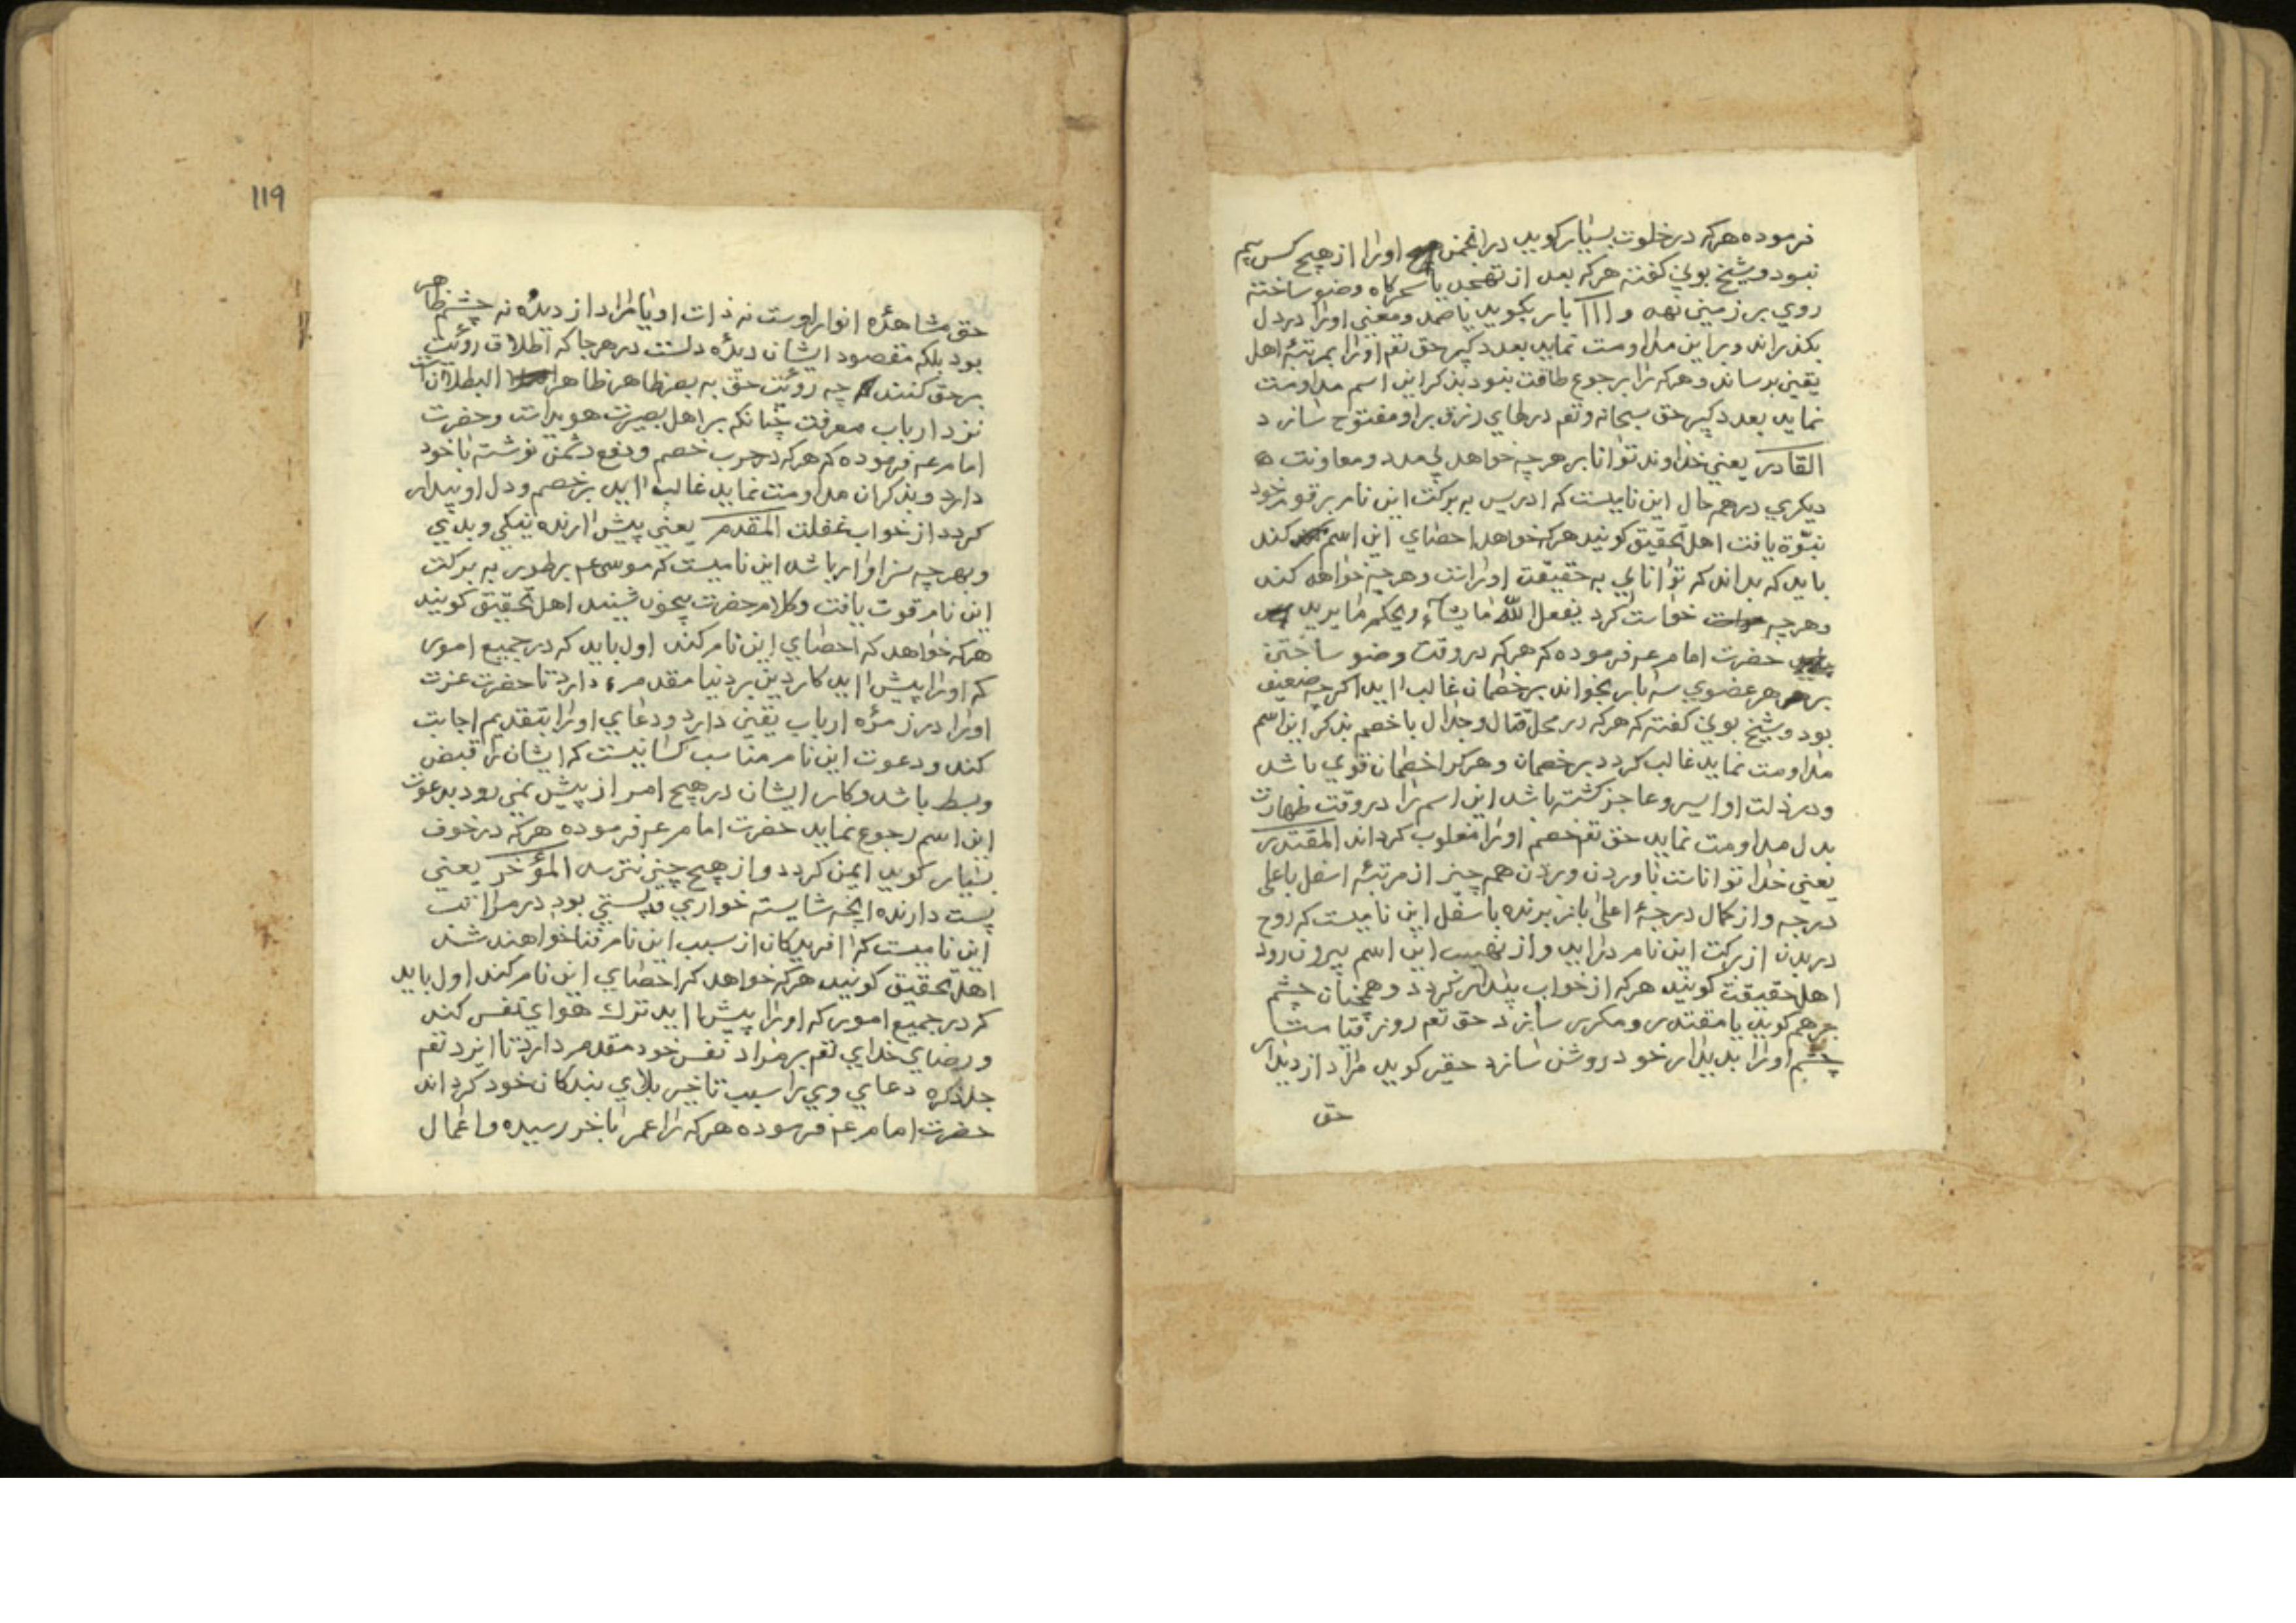 فرموده هرکه در خلوت بسیار کوید در انجمن اورا از هیچ کس بیم
نبود و شیخ بونی کفته هرکه بعد از تهجد یا سحرکاه وضو ساخته
روی بر زمین نهد و ااا بار بکوید یا صمد و معنی اورا در دل
بکذراند و براین مداومت نماید بعد دکیر حق تعم اورا بمرتبۀ اهل
یقین برساند و هرکه را برجوع طاقت نبود بذکر این اسم مداومت
نماید بعد دکیر حق سبحانه وتعم درهای رزق براو مفتوح سازد
القادر یعنی خداوند توانا بر هرچه خواهد بی مدد و معاونت
دیکری در همه حال این نامیست که ادریس به برکت این نام بر قوم خود
نبوّة یافت اهل تحقیق کویند هرکه خواهد احصای این اسم کند
باید که بداند که توانایی به حقیقت اوراست و هرچه خواهد کند
و هرچه خواست کرد یفعل الله ما یشآء ویحکم ما یرید
حضرت امام عم فرموده که هرکه در وقت وضو ساختن
بر هر عضوی سه بار بخواند بر خصمان غالب اید اکرچه ضعیف
بود و شیخ بونی کفته که هرکه در محل قتال و جدال با خصم بذکر این اسم
مداومت نماید غالب کردد بر خصمان و هرکرا خصمان قوی باشد
و در ذلت او اسیر و عاجز کشته باشد این اسم را در وقت طهارت
بدل مداومت نماید حق تعم خصم اورا مغلوب کرداند المقتدر
یعنی خدا تواناست باوردن وبردن همه چیز از مرتبۀ اسفل باعلی
درجه و از کمال درجۀ اعلی باز برنده باسفل این نامیست که روح
در بدن از برکت این نام دراید و از نهیب این اسم بیرون رود
اهل حقیقت کویند هرکه از خواب بیدار کردد و همچنان چشم
بر هم کوید یا مقتدر و مکرر سازد حق تعم روز قیامت
چشم اورا بدیدار خود روشن سازد حقیر کوید مراد از دیدار
حق
119
حق مشاهدۀ انوار اوست نه ذات او یا مراد از دیده نه چشم ظاهر
بود بلکه مقصود ایشان دیدۀ دلست در هرجا که اطلاق رؤیت
بر حق کنند چه رؤیت حق به بصر ظاهر ظاهر البطلانست
نزد ارباب معرفت چنانکه بر اهل بصیرت هویداست و حضرت
امام عم فرموده که هرکه در حرب خصم و دفع دشمن نوشته با خود
دارد و بذکر ان مداومت نماید غالب اید بر خصم و دل او بیدار
کردد از خواب غفلت المقدم یعنی پیش ارنده نیکی و بدی
و بهرچه سزاوار باشد این نامیست که موسی عم بر طور به برکت
این نام قوت یافت و کلام حضرت بیچون شنید اهل تحقیق کویند
هرکه خواهد که احصای این نام کند اول باید که در جمیع امور
که اورا پیش اید کار دین بر دنیا مقدم دارد تا حضرت عزت
اورا در زمرۀ ارباب یقین دارد و دعای اورا بتقدیم اجابت
کند و دعوت این نام مناسب کسانیست که ایشان را قبض
و بسط باشد و کار ایشان در هیچ امر از پیش نمی رود بدعوت
این اسم رجوع نماید حضرت امام عم فرموده هرکه در خوف
بسیار کوید ایمن کردد و از هیچ چیز نترسد المؤخر یعنی
پست دارنده انچه شایسته خواری و پستی بود در مراتب
این نامیست که افریدکان از سبب این نام فنا خواهند شد
اهل تحقیق کویند هرکه خواهد که احصای این نام کند اول باید
که در جمیع امور که اورا پیش اید ترک هوای نفس کند
و رضای خدای تعم بر مراد نفس خود مقدم دارد تا ایزد تعم
جلذکره دعای وی را سبب تاخیر بلای بندکان خود کرداند
حضرت امام عم فرموده هرکه را عمر باخر رسیده و اعمال